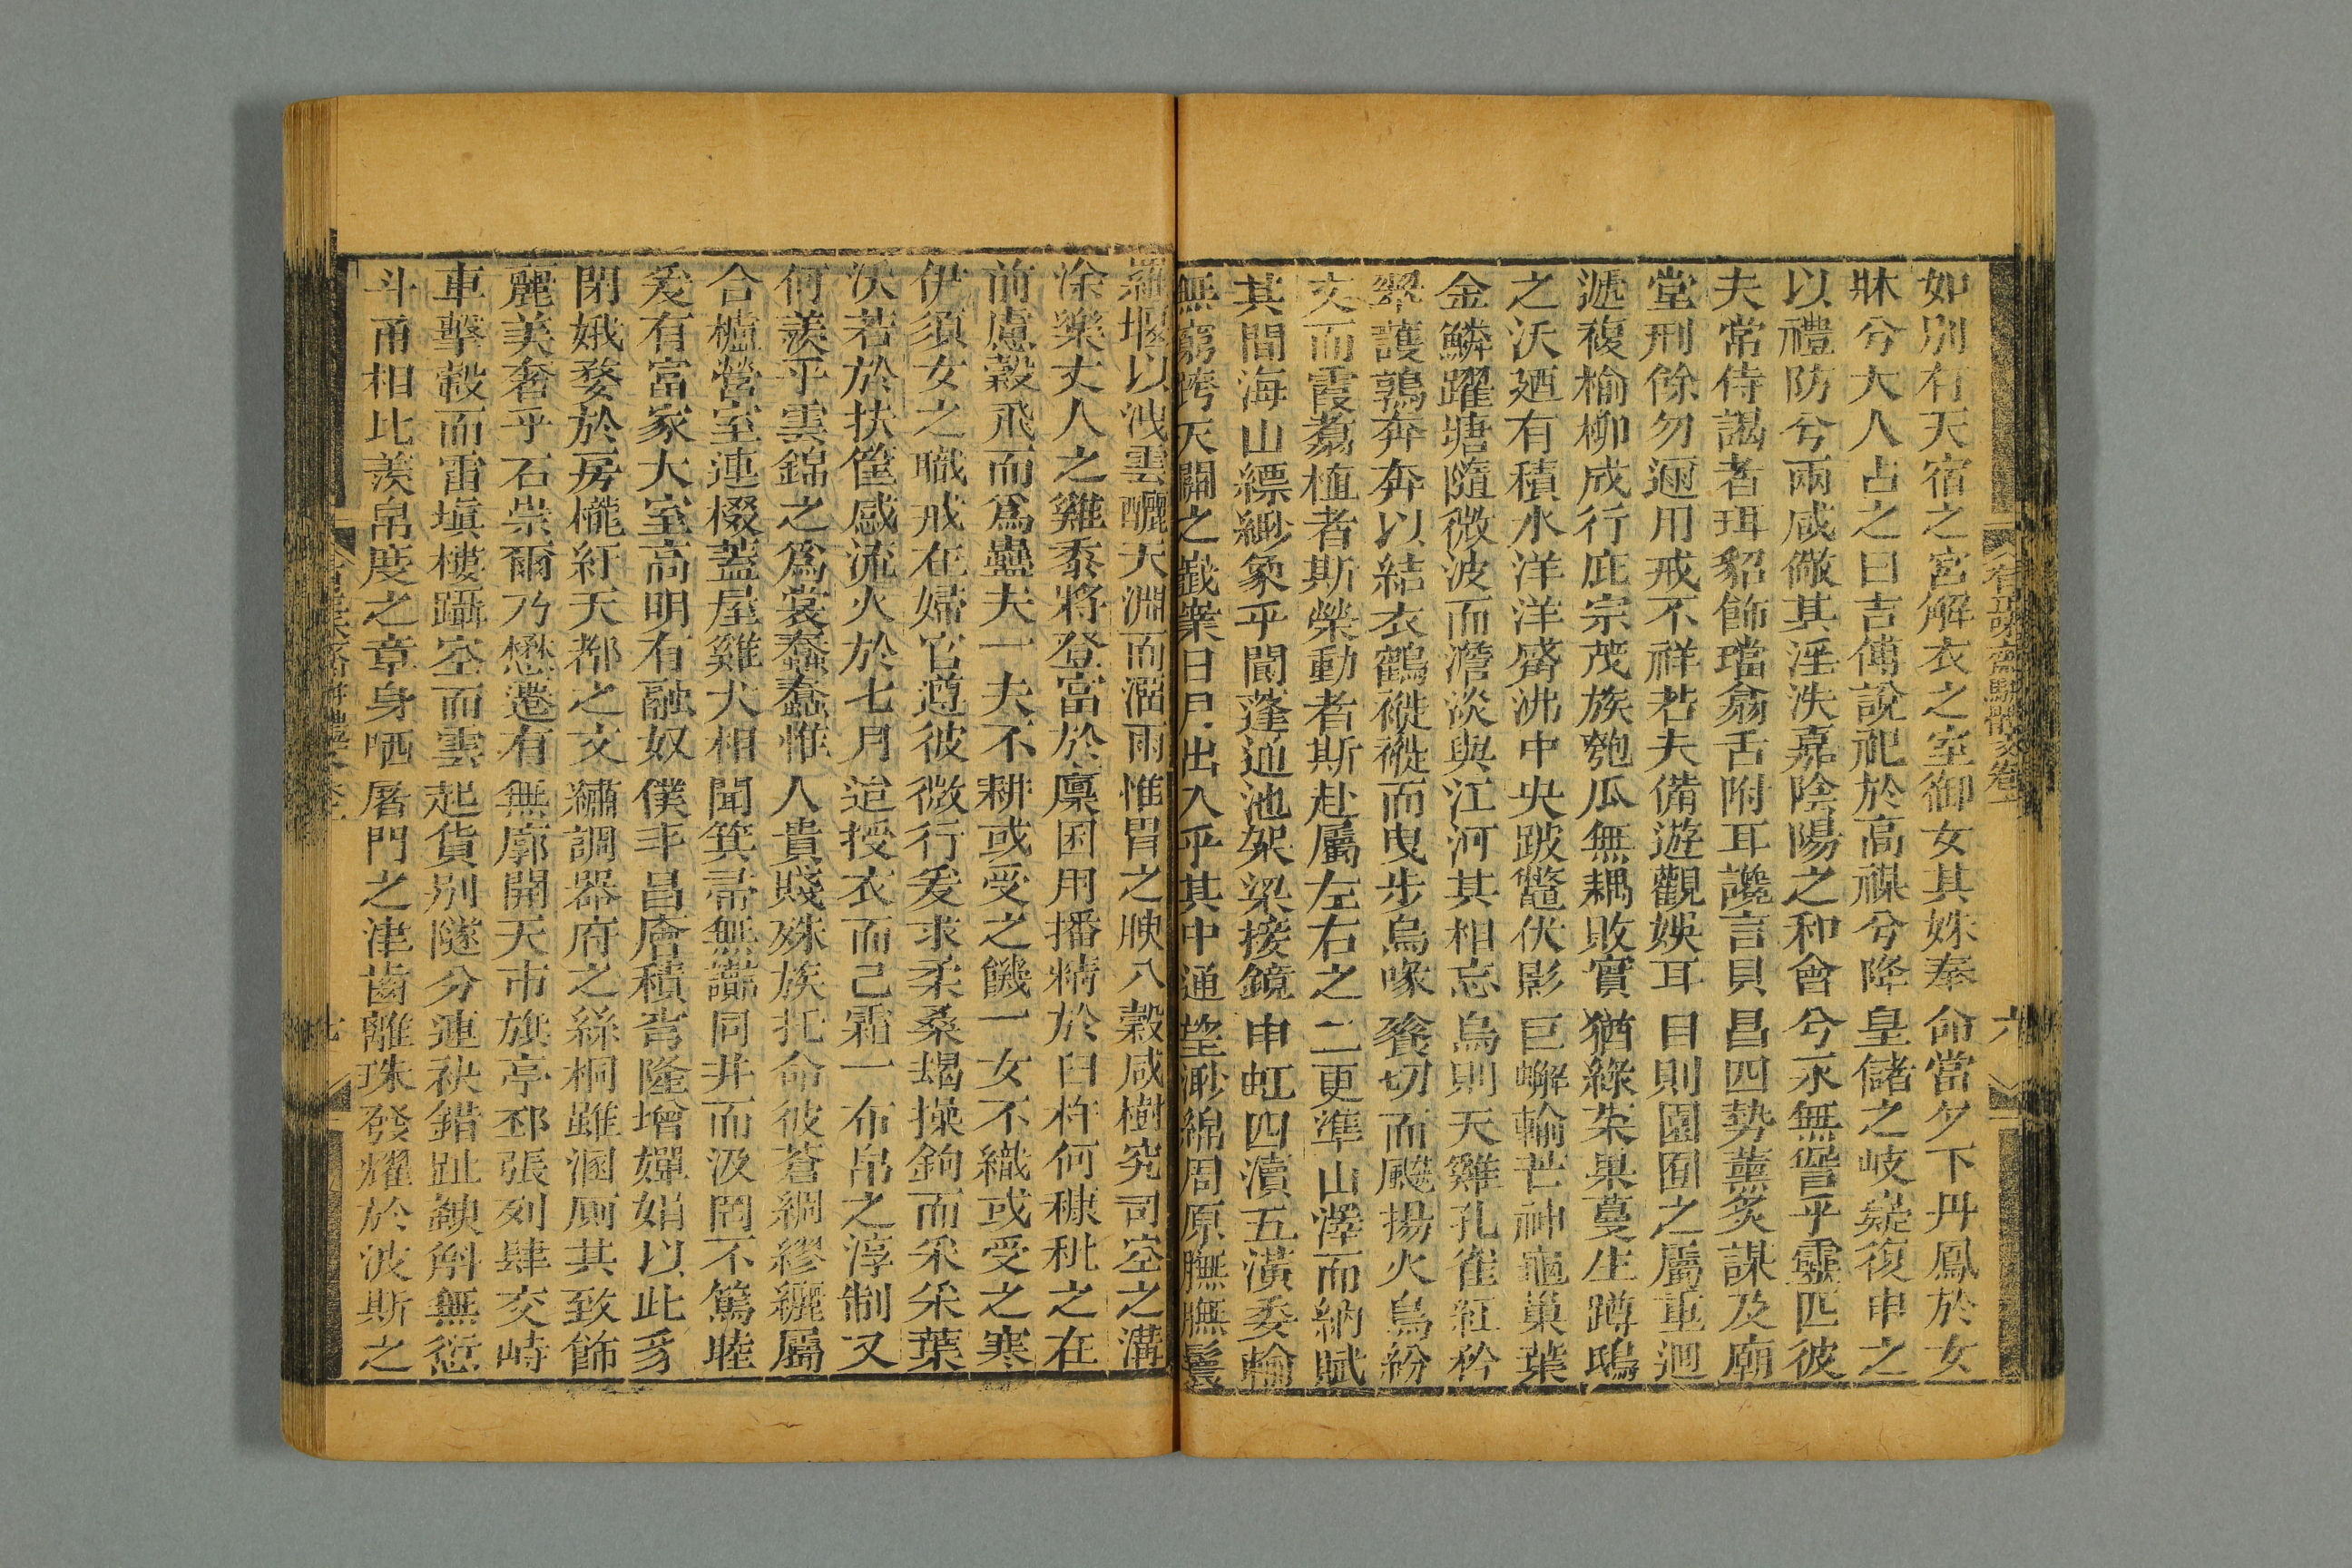 如別有天宿之宮解衣之室御女其姝奉命當夕下丹鳳於女
牀兮大人占之曰吉傅說祀於高禖兮降皇儲之岐嶷復申之
以禮防兮兩咸儆其淫泆嘉陰陽之和會兮永無訾乎靈匹彼
夫常侍謁者珥貂飾璫翕舌附耳讒言貝昌四勢薰炙謀及廟
堂刑餘勿邇用戒不祥若夫備遊觀娛耳目則園囿之屬重迴
遞複榆柳成行庇宗茂族匏瓜無耦敗實猶綠朱果蔓生蹲鴟
之沃廼有積水洋洋觱沸中央跛鼈伏影巨蠏輸芒神龜巢葉
金鱗躍塘隨微波而澹淡與江河其相忘烏則天雞孔雀紅衿
翠護鶉奔奔以結衣鶴褷褷而曳步烏喙餐切而颷揚火鳥紛
交而霞翥植者斯榮動者斯赴屬左右之二更準山澤而納賦
其間海山縹緲象乎閬蓬通池架梁接鏡申虹四瀆五潢委輪
無窮跨天關之嶻嶪日月出入乎其中通望渺綿周原膴膴鬟
羅堰以洩雲釃天淵而溜雨惟胃之腴八穀咸樹究司空之溝
涂樂丈人之雞黍將登富於廩囷用播精於臼杵何穅秕之在
前慮穀飛而爲蠱夫一夫不耕或受之饑一女不織或受之寒
伊須女之職戒在婦官遵彼微行爰求柔桑朅操鉤而采采葉
沃若於扶筐感流火於七月迨授衣而己霜一布帛之淳制又
何羡乎雲錦之爲裳蠢蠢惟人貴賤殊族托命彼蒼綢繆纚屬
合櫨營室連棳蓋屋雞犬相聞箕帚無讟同井而汲罔不篤睦
爰有富家大室高明有融奴僕丰昌廥積崇隆增嬋娟以此豸
閉娥婺於房櫳紆天都之文繡調器府之絲桐雖溷厠其致飾
麗美奢乎石崇爾乃懋遷有無廓開天市旗亭丕張列肆交峙
車擊轂而雷塡樓躡空而雲起貨別隧分連袂錯趾䫂斛無愆
斗甬相比羨帛度之章身哂屠門之津齒離珠發耀於波斯之